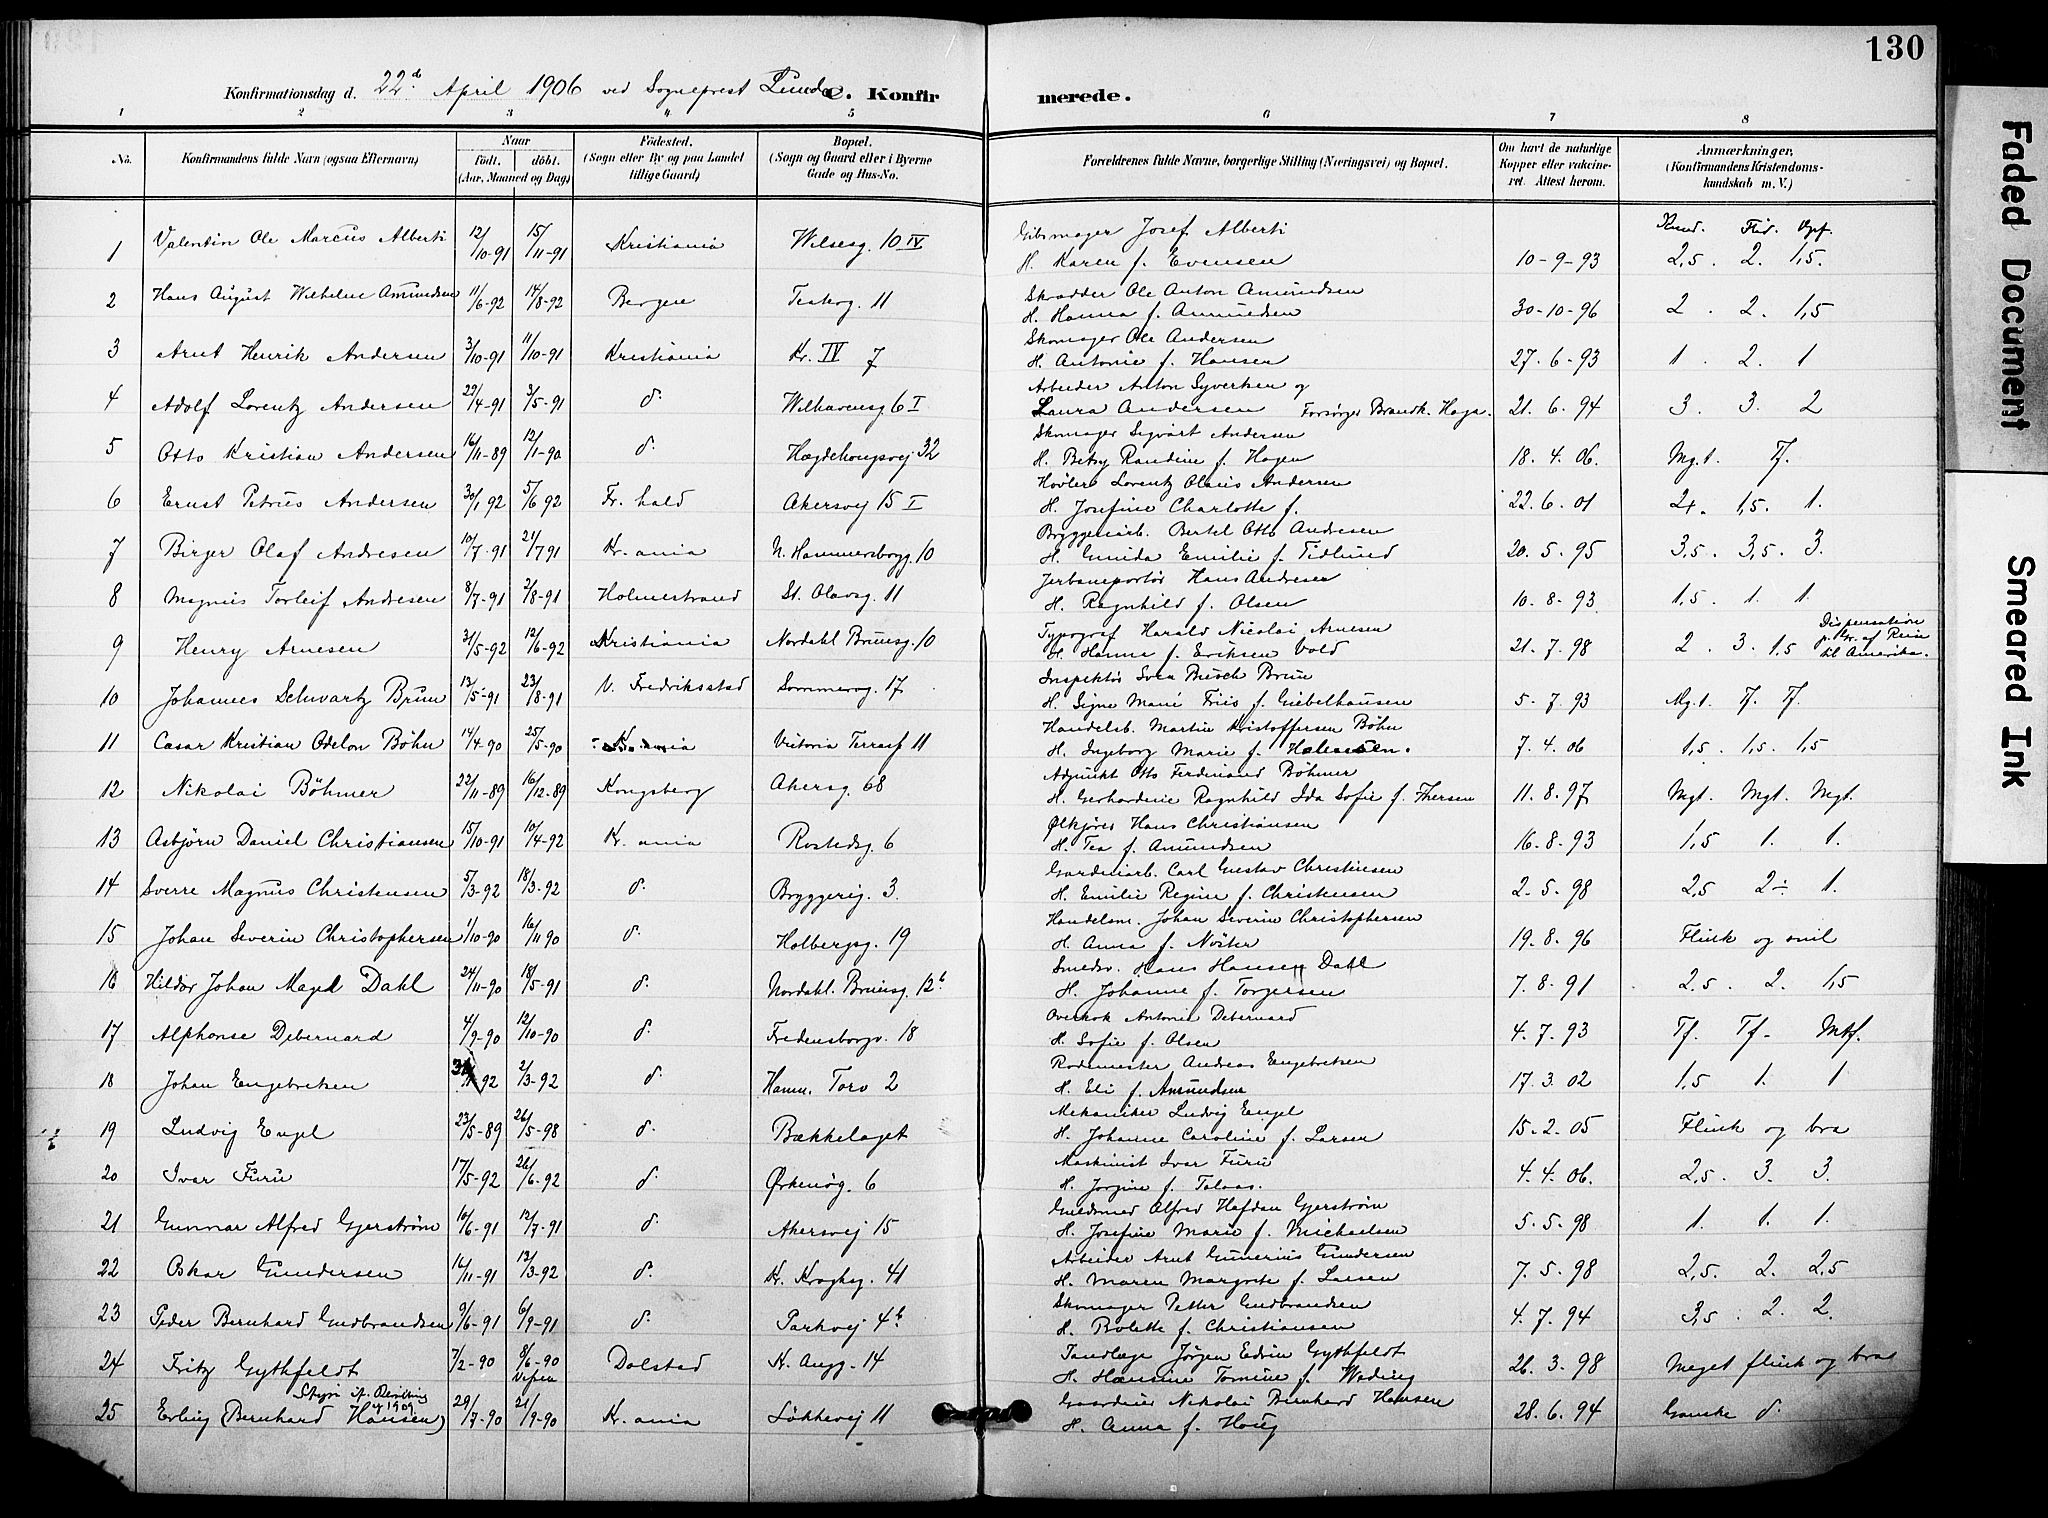 130
Konfirmationsdag d. 22de April 1906 ved Sogneprest Lunde
C. Konfirmerede.
1 2 3 4 5 6 7 8
No. Konfirmandens fulde Navn (ogsaa Efternavn) Naar födt. döbt. (Aar, Maaned og Dag) Födested. (Sogn eller By og paa Landet tillige Gaard) Bopæl. (Sogn og Gaard eller i Byerne Gade og Hus-No. Forældrenes fulde Navne, borgerlige Stilling (Næringsvei) og Bopæl. Om havt de naturlige Kopper eller vaccineret. Attest herom. Anmærkninger, (Konfirmandens Kristendomskundskab m. V.)
Kund. Flid. Opf.
1 Valentin Ole Marcus Alberti 12/10-91 15/11-91 Kristiania Wilsesg. 10 IV Gibsmager Josef Alberti
H. Karen f. Evensen 10-9-93 2,5. 2. 1,5.
2 Hans August Wilhelm Amundsen 11/6-92 14/8-92 Bergen Teaterg. 11 Skrædder Ole Anton Amundsen
H. Hanna f. Amundsen 30-10-96 2. 2. 1,5
3 Arnt Henrik Andersen 3/10-91 11/10-91 Kristiania Kr. IV 7 Skomager Ole Andersen
H. Antonie f. Hansen 27-6-93 1. 2. 1
4 Adolf Lorentz Andersen 22/4-91 3/5-91 d. Welhavensg 6 I Arbeider Anton Syvertsen og
Laura Andersen Forsørger Brandk. Haga. 21. 6. 94 3. 3. 2
5 Otto Kristian Andersen 16/11-89 12/1-90 d. Hægdehougsvej 32 Skomager Sigvart Andersen
H. Betsy Randine f. Hagen 18. 4. 06. Mg.t. Tf.
6 Ernst Petrus Andersen 30/1 92 5/6 92 Fr. hald Akersvej 15 I Høvler Lorentz Olaus Andersen
H. Josefine Charlotte f. 22. 6. 01 2+. 1,5. 1.
7 Birger Olaf Andresen 10/7-91 21/7 91 Kr. ania N. Hammersborgg. 10 Bryggeriarb. Bertel Otto Andresen
H. Gunida Emilie f. Tidlund 20. 5. 95 3,5. 3,5. 3.
8 Magnus Torleif Andresen 8/7-91 2/8-91 Holmestrand St. Olavsg. 11 Jerbaneportør Hans Andresen
H. Ragnhild f. Olsen 10. 8. 93 1,5. 1. 1.
9 Henry Arnesen 31/5-92 12/6-92 Kristiania Nordahl Brunsg. 10 Typograf Harald Nicolai Arnesen
H. Hanna f. Eriksen Vold 21. 7. 98 2. 3. 1,5 Dispensation p. Gr. af Reise til Amerika.
10 Johannes Schwartz Bruun 13/5-91 23/8-91 V. Fredriksstad Sommerog. 17 Inspektør Sven Busch Brun
H. Signe Marie Friis f. Giebelhausen 5-7.93 Mg.t. Tf. Tf.
11 Cæsar Kristian Odelon Bøhn 14/4-90 25/5-90 Kr. ania Victoria Terasse 11 Handelsb. Martin Kristoffersen Bøhn
H. Ingeborg Marie f. Halvorsen. 7. 4. 06 1,5. 1,5. 1,5
12 Nikolai Böhmer 22/11-89 16/12-89 Kongsberg Akersg. 68 Adjunkt Otto Ferdinand Böhmer
H. Gerhardine Ragnhild Ida Sofie f. Thersen 11. 8. 97 Mgt. Mgt. Mgt.
13 Asbjørn Daniel Christiansen 15/10-91 10/4-92 Kr. ania Rostedsg. 6 Ølkjører Hans Christiansen
H. Tea f. Amundsen 16. 8. 93 1,5 1. 1.
14 Sverre Magnus Christensen 5/3-92 18/3-92 d. Bryggerig. 3. Gardinarb. Carl Gustav Christensen
H. Emilie Regine f. Christensen 2. 5. 98 2,5 2÷. 1.
15 Johan Severin Christophersen 1/10-90 16/11 90 d. Holbergsg. 19 Handelsm. Johan Severin Christophersen
H. Anna f. Nøster 19. 8. 96 Flink og snil
16 Hildor Johan Magel Dahl 24/11-90 18/5-91 d. Nordahl. Brunsg. 12b Smedsv. Hans Hansen Dahl
H. Johanne f. Torgersen 7. 8. 91 2,5. 2. 1,5
17 Alphonse Debernard 4/9-90 12/10-90 d. Fredensborgv. 18 Overkok Antonie Debernard
H. Sofie f. Olsen 4. 7. 93 Tf. Tf- Mtf.
18 Johan Engebretsen 31/1 92 2/3-92 d. Hamm. Torv 2 Rodemester Andreas Engebretsen
H. Eli f. Amundsen 17. 3. 02 1,5 1. 1
19 Ludvig Engel 23/5-89 26/5-98 d. Bækkelaget Mekaniker Ludvig Engel
H. Johanne Caroline f. Larsen 15. 2. 05 Flink og bra
20 Ivar Furu 17/5-92 26/6-92 d. Ørkenög. 6 Maskinist Ivar Furu
H. Jorgine f. Talaas. 4. 4. 06. 2,5. 3. 3.
21 Gunnar Alfred Gjerstrøm 10/6-91 12/7-91 d. Akersvej 15 Guldsmed Alfred Hafdan Gjerstrøm
H. Josefine Marie f. Michaelsen 5. 5. 98 1. 1. 1.
22 Oskar Gundersen 16/11-91 13/3-92 d. Kr. Kroghsg. 41 Arbeider Arnt Gunerius Gundersen
H. Maren Margrete f. Larsen 7. 5. 98 2,5. 2. 2,5
23 Peder Bernhard Gudbrandsen 9/6-91 6/9-91 d. Parkvej 4b Skomager Petter Gudbrandsen
H. Bolette f. Christiansen 4. 7. 94 3,5. 2. 2.
24 Fritz Gythfeldt 7/2-90 8/6-90 Vefsen Dolstad K. Augg. 14 Tandlæge Jørgen Edvin Gythfeldt
H. Hansine Tomine f. Weding 26. 3. 98 Meget flink og bra
1909.
25 Erling (Bernhard Hansen) 29/7-90 21/9-90 Kr. ania Løkkevej 11 Gaardeier Nikolai Bernhard Hansen
H. Anna f. Houg 28. 6. 94 Ganske d.
Faded Document
Smeared Ink